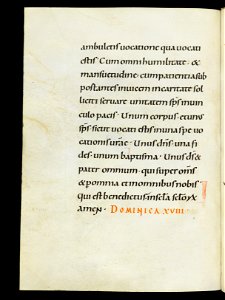 ambuletis uocatione qua uocati
estis Cum omni humilitate · &
mansuetudine · cum patientia sub
portantes inuicem in caritate sol
liciti seruare unitatem sp̄s in uin
culo pacis · Unum corpus et unus
sp̄s sicut uocati estis in una spe uo
cationis ur̄ae · Unus dn̄s una fi
des · unum baptisma · Unus ds̄ &
pater omnium · qui super om̄s
& p omnia et in omnibus nobis
qui est benedictus in sc̄la sc̄lor̄
amen · DOMINICA XVIII